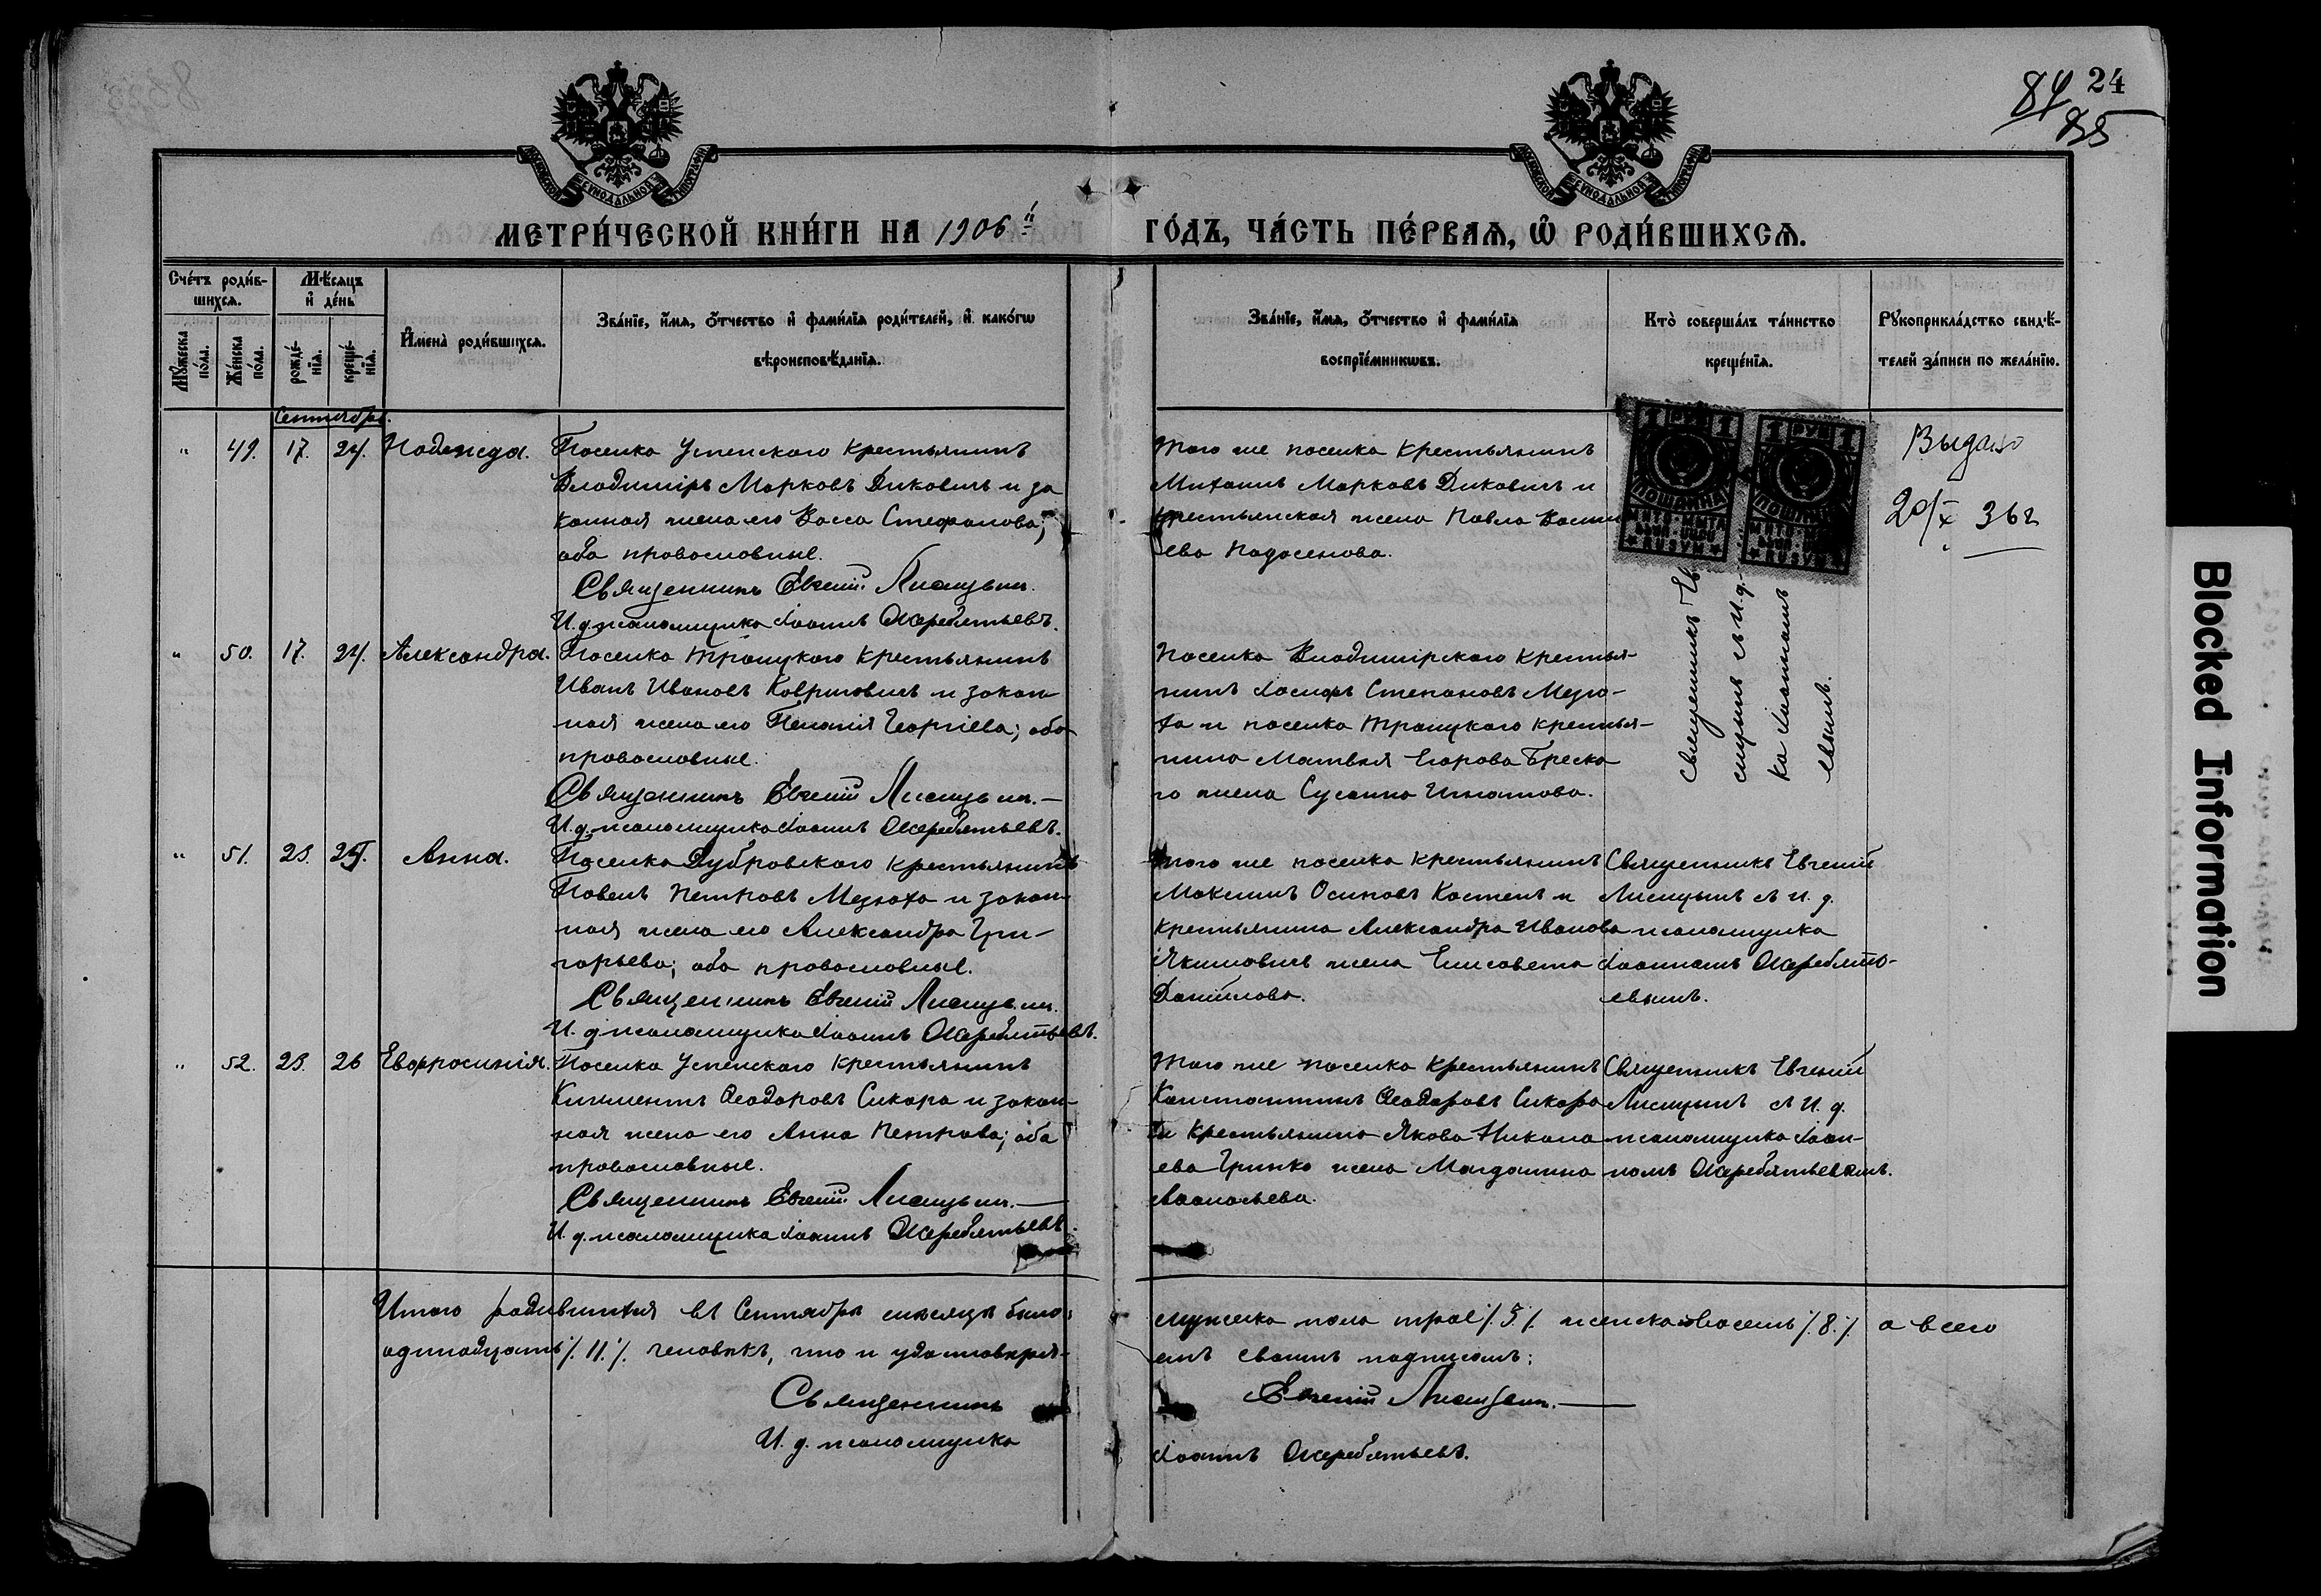 24
84
85
МОСКОВСКОЙ СѴНОДАЛЬНОЙ ТИПОГРАФІИ
МОСКОВСКОЙ СѴНОДАЛЬНОЙ ТИПОГРАФІИ
МЕТРИ́ЧЕСКОЙ КНИ́ГИ НА 1906й ГО́ДЪ, ЧА́СТЬ ПЕ́РВАѦ, Ѡ҆ РОДИ́ВШИХСѦ.
Сче́тъ роди́в-
шихсѧ.
Мꙋ́жеска по́ла.
Же́нска по́ла.
Мѣ́сѧцъ
и҆ де́нь
рожде́-
нїѧ.
креще́-
нїѧ.
И҆мена̀ роди́вшихсѧ.
Зва́нїе, и҆́мѧ, ѻ҆́тчество и҆ фами́лїѧ роди́телей, и҆ како́гѡ
вѣроисповѣ́данїѧ.
Зва́нїе, и҆́мѧ, ѻ҆́тчество и҆ фами́лїѧ
воспрїе́мникѡвъ.
Кто̀ соверша́лъ та́инство
креще́нїѧ.
Рꙋкоприкла́дство свидѣ́-
телей за́писи по жела́нїю.
Сентябрь.
" 49. 17. 24. Надежда.
Поселка Успенскаго крестьянинъ
Владиміръ Марковъ Диковичъ и за
конная жена его Васса Стефанова;
оба православные.
Священникъ Евгеній Лисицынъ.
И. д. псаломщика Іоаннъ Жеребятьевъ.
Того же поселка крестьянинъ
Михаилъ Марковъ Диковичъ и
крестьянская жена Павла Васи
ева
Священникъ Ев
сицынъ съ И. д.
ка Іоанномъ
евымъ.
1 РУБ 1
ПОШЛИНА
1 РУБ 1
ПОШЛИНА
Выдано
20/X 36 г
" 50. 17. 24. Александра.
Поселка Троицкаго крестьянинъ
Иванъ Ивановъ Ковриговичъ и закон-
ная жена его Пелагія Георгіева; оба
православные.
Священникъ Евгеній Лисицынъ.—
И. д. псаломщика Іоаннъ Жеребятьевъ.
Поселка Владимірскаго крестья-
нинъ Іосифъ Степановъ Медю-
ха и поселка Троицкаго крестья-
нина Матвѣя Егорова Бреска
го жена Сусанна Игнатова.
" 51. 23. 24. Анна.
Поселка Дубровскаго крестьянинъ
Павелъ Петровъ Медюха и закон-
ная жена его Александра Гри-
горьева; оба православные.
Священникъ Евгеній Лисицынъ.
И. д. псаломщика Іоаннъ Жеребятьевъ.
Того же поселка крестьянинъ
Максимъ Осиповъ Костенъ и
крестьянина Александра Иванова
Якимовичъ жена Елисавета
Даніилова.
Священникъ Евгеній
Лисицынъ съ И. д.
псаломщика
Іоанномъ Жеребять-
евымъ.
" 52. 23. 26 Евфросинія.
Поселка Успенскаго крестьянинъ
Климентъ Ѳеодоровъ Сикора и закон-
ная жена его Анна Петрова; оба
православные.
Священникъ Евгеній Лисицынъ.—
И. д. псаломщика Іоаннъ Жеребятьевъ.
Того же поселка крестьянинъ
Константинъ Ѳеодоровъ Сикора
и крестьянина Якова Никола
ева Гринко жена Магдалина
Аѳанасьева.
Священникъ Евгеній
Лисицынъ съ И. д.
псаломщика Іоан-
номъ Жеребятьевымъ.
Итого родившихся въ Сентябрѣ мѣсяцѣ было: мужеска пола трое /.3/. женска восемь /.8./. а всего
одинадцать /.11./. человѣкъ, что и удостовѣря- емъ своимъ подписомъ:
Священникъ Евгеній Лисицынъ.—
И. д. псаломщика Іоаннъ Жеребятьевъ.
Blocked Information